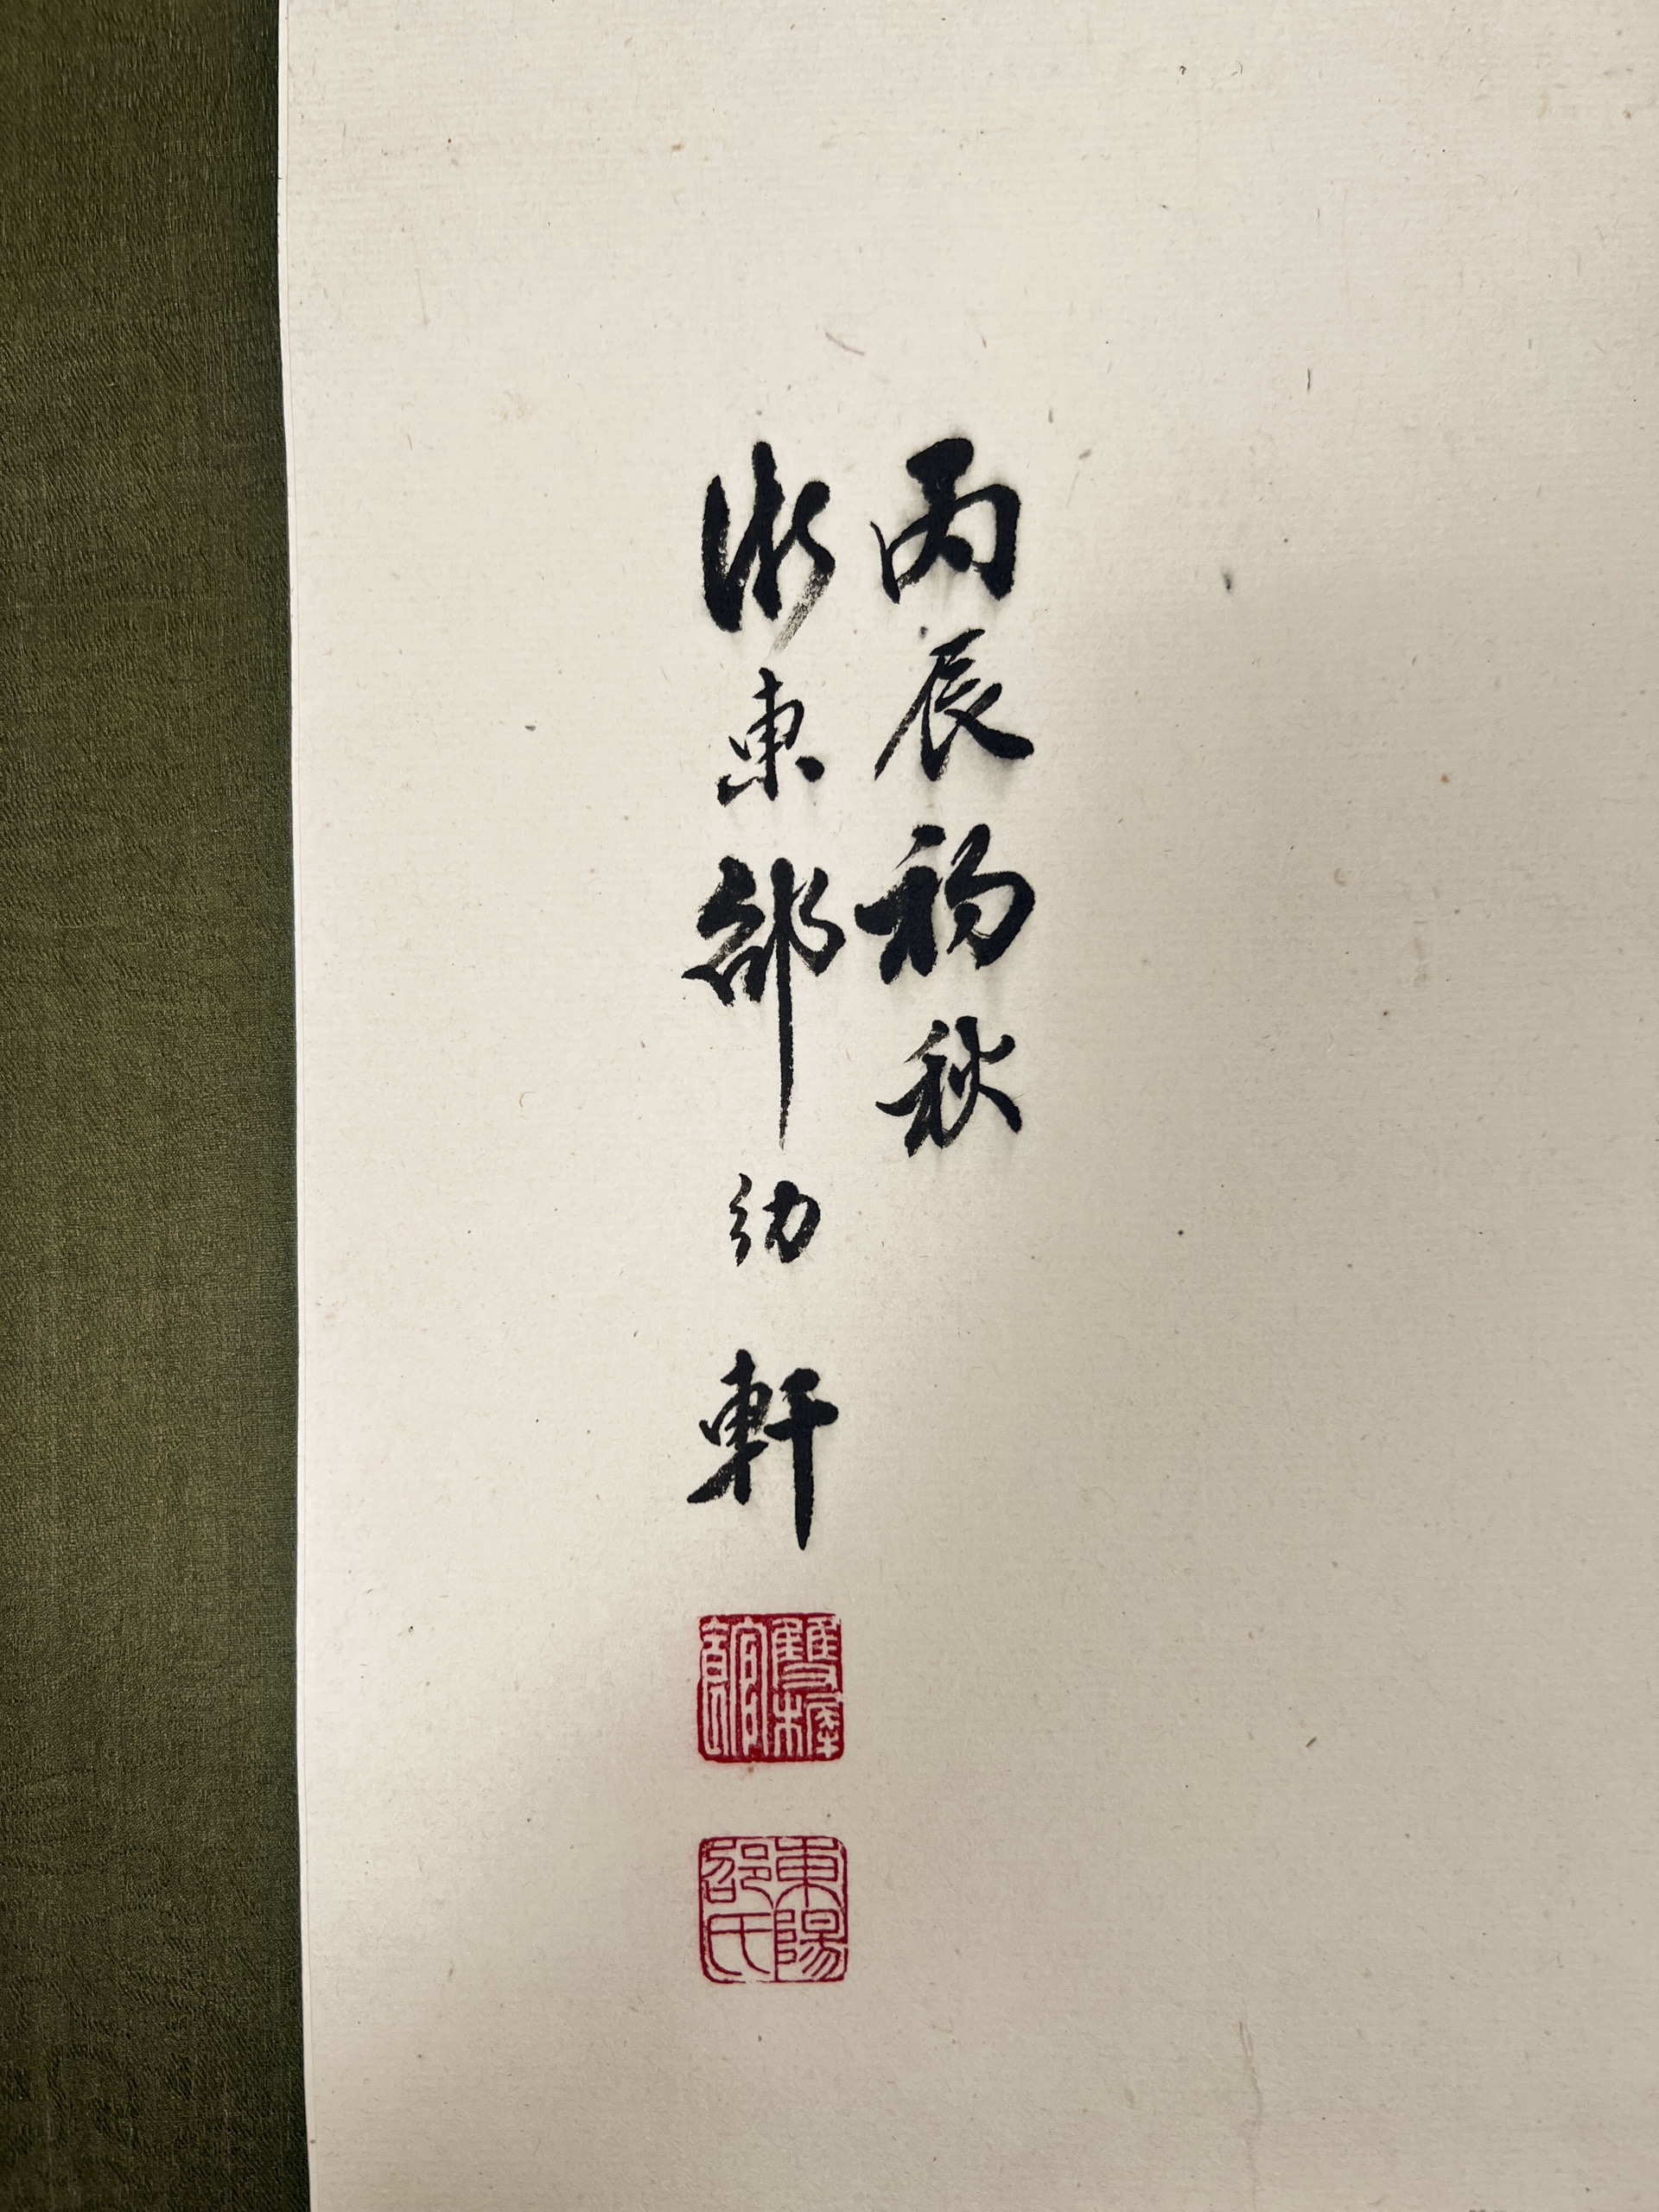 丙辰初秋
浙東邵幼軒
雙樨館
東陽邵氏